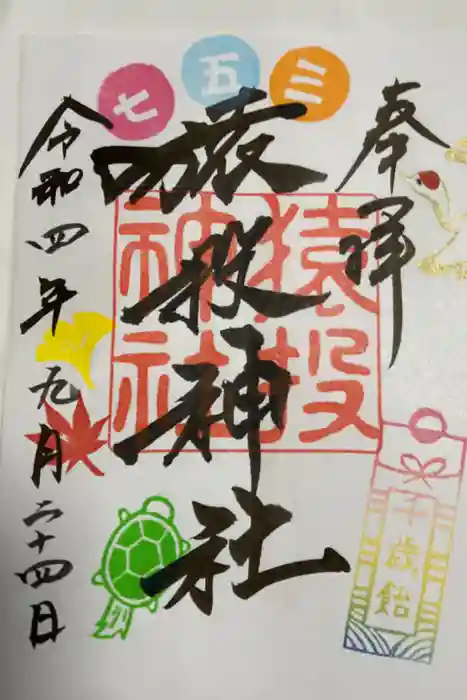 七五三
奉拝
猿投神社
猿投神社
令和四年九月二十四日
千歳飴